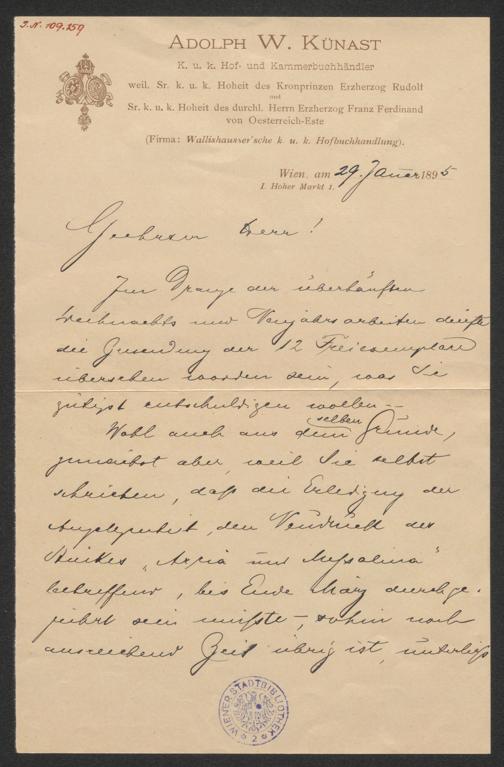 J.N. 109.259
ADOLPH W. KÜNAST
K. u. k. Hof- und Kammerbuchhändler
weil. Sr. k. u. k. Hoheit des Kronprinzen Erzherzog Rudolf
und
Sr. k. u. k. Hoheit des durchl. Herrn Erzherzog Franz Ferdinand
von Oesterreich-Este
(Firma: Wallishausser'sche k. u. k. Hofbuchhandlung).
Wien, am 29. Januar 1895
I. Hoher Markt 1.
Geehrter Herr!
Im Drange der überhäuften
Weihnachts und Neujahrsarbeiten dürfte
die Zusendung der 12 Freiexemplare
übersehen worden sein, was Sie
gütigst entschuldigen wollen –
Wohl auch aus dem selben Grunde,
zumeist aber, weil Sie selbst
schrieben, daß die Erledigung der
Angelegenheit, den Neudruck des
Stückes „Arria und Messalina"
betreffend, bis Ende März durchge-
führt sein müßte –, sohin noch
ausreichend Zeit übrig ist, unterließ
WIENER STADTBIBLIOTHEK
2